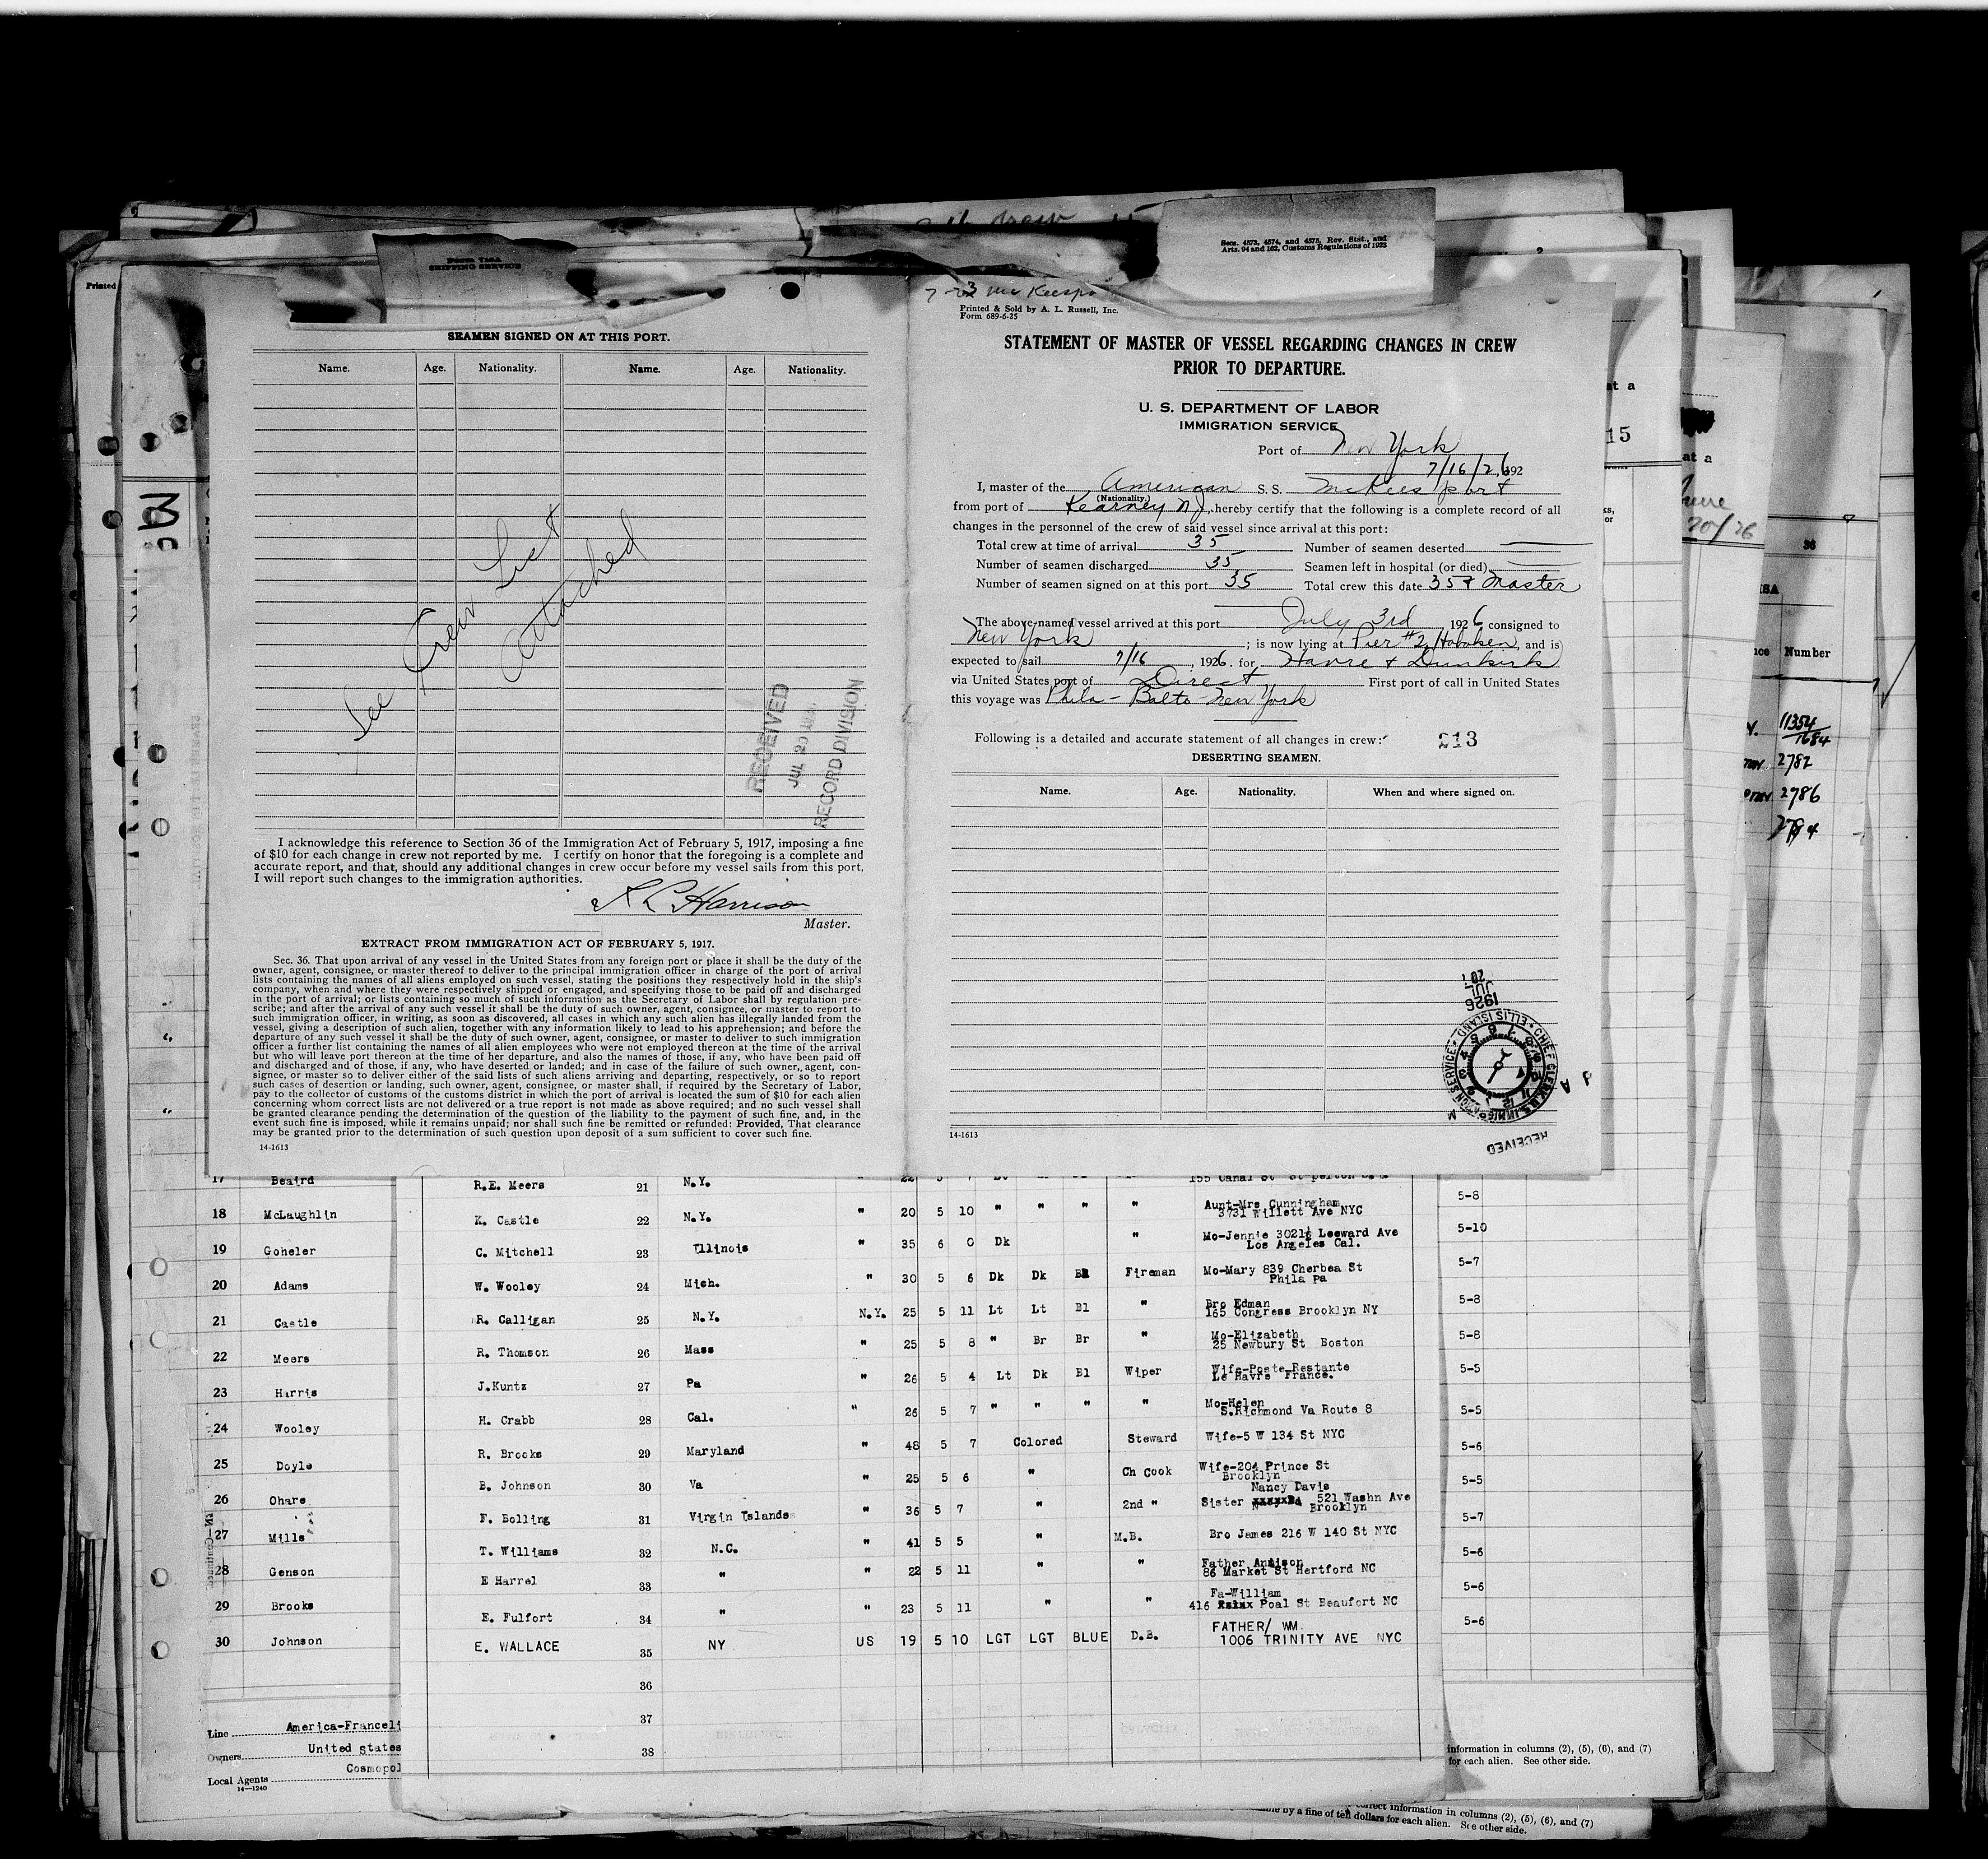 Form 710A
SHIPPING SERVICE
Secs. 4573, 4574, and 4575, Rev. Stat., and
Arts. 94 and 162, Customs Regulations of 1923
Printed
SEAMEN SIGNED ON AT THIS PORT.
Name. Age. Nationality. Name. Age. Nationality.
See Crew List
Attached
RECEIVED
JUL 20 192
RECORD DIVISION
I acknowledge this reference to Section 36 of the Immigration Act of February 5, 1917, imposing a fine
of $10 for each change in crew not reported by me. I certify on honor that the foregoing is a complete and
accurate report, and that, should any additional changes in crew occur before my vessel sails from this port,
I will report such changes to the immigration authorities.
Harrison
Master.
EXTRACT FROM IMMIGRATION ACT OF FEBRUARY 5, 1917.
Sec. 36. That upon arrival of any vessel in the United States from any foreign port or place it shall be the duty of the
owner, agent, consignee, or master thereof to deliver to the principal immigration officer in charge of the port of arrival
lists containing the names of all aliens employed on such vessel, stating the positions they respectively hold in the ship's
company, when and where they were respectively shipped or engaged, and specifying those to be paid off and discharged
in the port of arrival; or lists containing so much of such information as the Secretary of Labor shall by regulation pre-
scribe; and after the arrival of any such vessel it shall be the duty of such owner, agent, consignee, or master to report to
such immigration officer, in writing, as soon as discovered, all cases in which any such alien has illegally landed from the
vessel, giving a description of such alien, together with any information likely to lead to his apprehension; and before the
departure of any such vessel it shall be the duty of such owner, agent, consignee, or master to deliver to such immigration
officer a further list containing the names of all alien employees who were not employed thereon at the time of the arrival
but who will leave port thereon at the time of her departure, and also the names of those, if any, who have been paid off
and discharged and of those, if any, who have deserted or landed; and in case of the failure of such owner, agent, con-
signee, or master so to deliver either of the said lists of such aliens arriving and departing, respectively, or so to report
such cases of desertion or landing, such owner, agent, consignee, or master shall, if required by the Secretary of Labor,
pay to the collector of customs of the customs district in which the port of arrival is located the sum of $10 for each alien
concerning whom correct lists are not delivered or a true report is not made as above required; and no such vessel shall
be granted clearance pending the determination of the question of the liability to the payment of such fine, and, in the
event such fine is imposed, while it remains unpaid; nor shall such fine be remitted or refunded: Provided, That clearance
may be granted prior to the determination of such question upon deposit of a sum sufficient to cover such fine.
14-1613
Printed & Sold by A. L. Russell, Inc.
Form 689-6-25
STATEMENT OF MASTER OF VESSEL REGARDING CHANGES IN CREW
PRIOR TO DEPARTURE.
U. S. DEPARTMENT OF LABOR
IMMIGRATION SERVICE
Port of New York
7/16/26, 192
I, master of the American S. S. McKeesport
(Nationality.)
from port of Kearney NJ, hereby certify that the following is a complete record of all
changes in the personnel of the crew of said vessel since arrival at this port:
Total crew at time of arrival 35 Number of seamen deserted
Number of seamen discharged 35 Seamen left in hospital (or died)
Number of seamen signed on at this port 35 Total crew this date 35 & Master
The above-named vessel arrived at this port July 3rd 1926 consigned to
New York; is now lying at Pier #2 Hoboken, and is
expected to sail 7/16, 1926. for Havre & Dunkirk
via United States port of Direct First port of call in United States
this voyage was Phila - Balto New York
Following is a detailed and accurate statement of all changes in crew: 213
DESERTING SEAMEN.
Name. Age. Nationality. When and where signed on.
JUL 20 1926
CHIEF CLERK U.S. IMMIGRATION SERVICE ELLIS ISLAND
RECEIVED
14-1613
17 Beaird
18 McLaughlin
19 Goheler
20 Adams
21 Castle
22 Meers
23 Harris
24 Wooley
25 Doyle
26 Ohare
27 Mills
28 Genson
29 Brooks
30 Johnson
Line America-Franceli
Owners United states
Local Agents Cosmopol
14-1240
R.E. Meers 21 N.Y. " 22 5 7 155 Canal St
K. Castle 22 N.Y. " 20 5 10 " " " " Aunt-Mrs Cunningham 3731 Willett Ave NYC 5-8
C. Mitchell 23 Illinois " 35 6 0 Dk " Mo-Jennie 3021½ Leeward Ave Los Angeles Cal. 5-10
W. Wooley 24 Mich. " 30 5 6 Dk Dk Fireman Mo-Mary 839 Cherbea St Phila Pa 5-7
R. Calligan 25 N.Y. N.Y. 25 5 11 Lt Lt Bl " Bro Edman 165 Congress Brooklyn NY 5-8
R. Thomson 26 Mass " 25 5 8 " Br Br " Mo-Elizabeth 25 Newbury St Boston 5-8
J.Kuntz 27 Pa " 26 5 4 Lt Dk Bl Wiper Wife-Poste Restante Le Havre France. 5-5
H. Crabb 28 Cal. " 26 5 7 " " " " Mo-Helen S.Richmond Va Route 8 5-5
R. Brooks 29 Maryland " 48 5 7 Colored Steward Wife-5 W 134 St NYC 5-6
B. Johnson 30 Va " 25 5 6 " Ch Cook Wife-204 Prince St Brooklyn 5-5
F. Bolling 31 Virgin Islands " 36 5 7 " 2nd " Nancy Davis Sister 521 Washn Ave Brooklyn 5-7
T. Williams 32 N.C. " 41 5 5 " M.B. Bro James 216 W 140 St NYC 5-6
E Harrel 33 " " 22 5 11 " " Father Annison 86 Market St Hertford NC 5-6
E. Fulfort 34 " " 23 5 11 " " Fa-William 416 Poal St Beaufort NC 5-6
E. WALLACE 35 NY US 19 5 10 LGT LGT BLUE D.B. FATHER/ WM. 1006 TRINITY AVE NYC
36
37
38
information in columns (2), (5), (6), and (7)
for each alien. See other side.
correct information in columns (2), (5), (6), and (7)
by a fine of ten dollars for each alien. See other side.
at a
15
at a
June
20/26
36
Number
11354
1684
2782
2786
2784